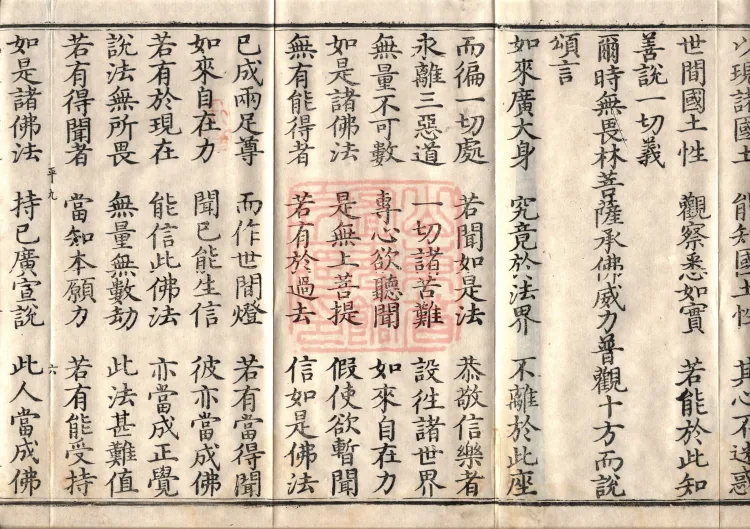 現諸國土 能知國土性 其心不迷惑
世間國土性 觀察悉如實 若能於此知
善說一切義
爾時無畏林菩薩承佛威力普觀十方而說
頌言
如來廣大身 究竟於法界 不離於此座
而徧一切處 若聞如是法 恭敬信樂者
永離三惡道 一切諸苦難 設往諸世界
無量不可數 專心欲聽聞 如來自在力
如是諸佛法 是無上菩提 假使欲暫聞
無有能得者 若有於過去 信如是佛法
已成兩足尊 而作世間燈 若有當得聞
如來自在力 聞已能生信 彼亦當成佛
若有於現在 能信此佛法 亦當成正覺
說法無所畏 無量無數劫 此法甚難值
若有得聞者 當知本願力 若有能受持
平九 六
如是諸佛法 持已廣宣說 此人當成佛